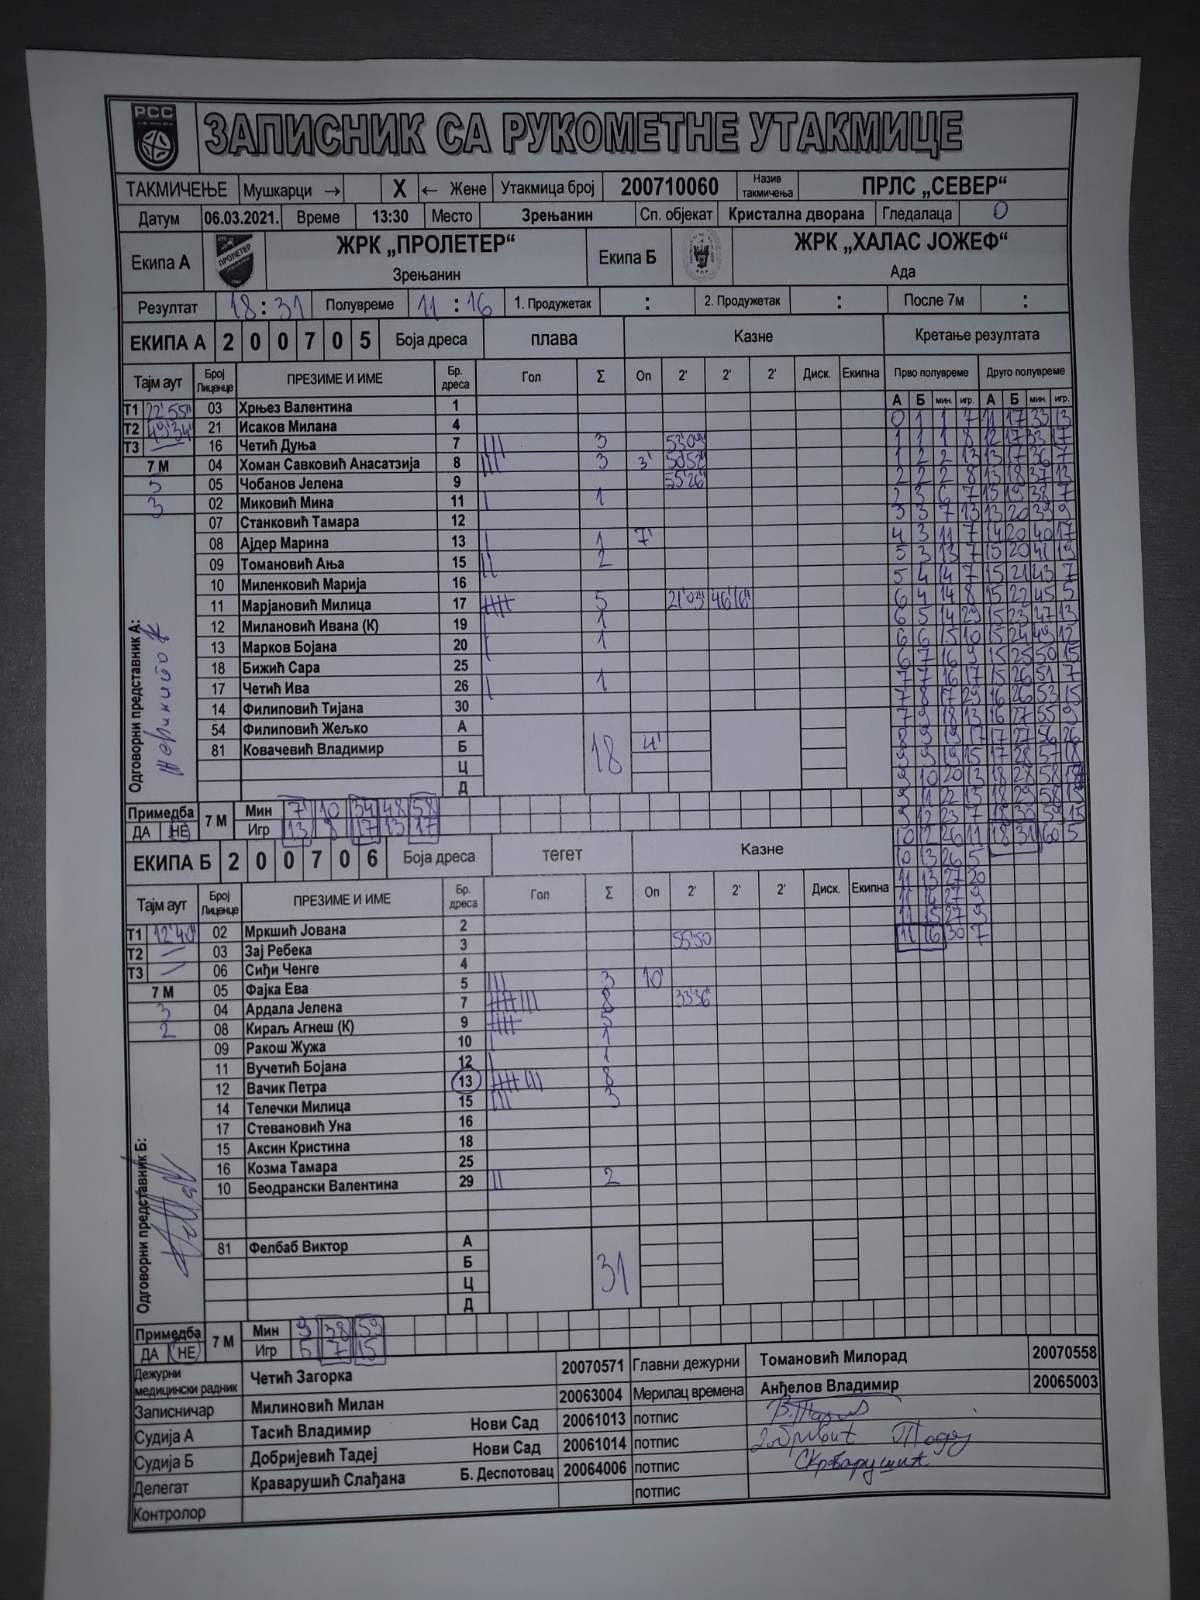 РСС
ЗАПИСНИК СА РУКОМЕТНЕ УТАКМИЦЕ
ТАКМИЧЕЊЕ Мушкарци → X ← Жене Утакмица број 200710060 Назив такмичења ПРЛС „СЕВЕР“
Датум 06.03.2021. Време 13:30 Место Зрењанин Сп. објекат Кристална дворана Гледалаца 0
Екипа А ПРОЛЕТЕР ЖРК „ПРОЛЕТЕР“ Зрењанин Екипа Б ЖРК „ХАЛАС ЈОЖЕФ“ Ада
Резултат 18 : 31 Полувреме 11 : 16 1. Продужетак : 2. Продужетак : После 7м :
ЕКИПА А 2 0 0 7 0 5 Боја дреса плава Казне Кретање резултата
Тајм аут Број Лиценце ПРЕЗИМЕ И ИМЕ Бр. дреса Гол Σ Оп 2' 2' 2' Диск. Екипна Прво полувреме Друго полувреме
А Б мин. игр. А Б мин. игр.
Т1 22'55" 03 Хрњез Валентина 1
Т2 49'34" 21 Исаков Милана 4
Т3 16 Четић Дуња 7 3 53'09"
7 М 04 Хоман Савковић Анасатзија 8 3 3' 50'52"
5 05 Чобанов Јелена 9 55'26"
3 02 Миковић Мина 11 1
07 Станковић Тамара 12
08 Ајдер Марина 13 1 7'
09 Томановић Ања 15 2
10 Миленковић Марија 16
11 Марјановић Милица 17 5 21'03" 46'16"
12 Милановић Ивана (К) 19 1
13 Марков Бојана 20 1
18 Бижић Сара 25
17 Четић Ива 26 1
14 Филиповић Тијана 30
54 Филиповић Жељко А
81 Ковачевић Владимир Б 18 4'
Ц
Д
Одговорни представник А:
0 1 1 7 11 17 33 13
1 1 1 8 12 17 33 17
1 2 2 13 13 17 36 7
2 2 2 8 13 18 37 13
2 3 6 7 13 19 38 7
3 3 7 13 13 20 39 9
4 3 11 7 14 20 40 17
5 3 13 7 15 20 41 19
5 4 14 7 15 21 43 7
6 4 14 8 15 22 45 5
6 5 14 29 15 23 47 13
6 6 15 10 15 24 49 12
6 7 16 9 15 25 50 15
7 7 16 17 15 26 51 7
7 8 17 29 16 26 53 15
7 9 18 13 16 27 55 9
8 9 19 17 17 27 56 26
9 9 19 15 17 28 57
9 10 20 13 18 28 58 17
9 11 22 13 18 29 58 15
9 12 23 7 18 30 59 15
10 12 26 11 18 31 60 5
10 13 26 5
11 13 27 20
11 14 27 9
11 15 27 9
11 16 30 7
Примедба ДА НЕ 7 М Мин 7' 10 34 48 58
Игр 13 8 17 13 17
ЕКИПА Б 2 0 0 7 0 6 Боја дреса тегет Казне
Тајм аут Број Лиценце ПРЕЗИМЕ И ИМЕ Бр. дреса Гол Σ Оп 2' 2' 2' Диск. Екипна
Т1 12'40" 02 Мркшић Јована 2
Т2 03 Зај Ребека 3 55'50
Т3 06 Сиђи Ченге 4
7 М 05 Фајка Ева 5 3 10'
3 04 Ардала Јелена 7 8 33'36"
2 08 Кираљ Агнеш (К) 9 5
09 Ракош Жужа 10 1
11 Вучетић Бојана 12 1
12 Вачик Петра 13 8
14 Телечки Милица 15 3
17 Стевановић Уна 16
15 Аксин Кристина 18
16 Козма Тамара 25
10 Беодрански Валентина 29 2
81 Фелбаб Виктор А
Б 31
Ц
Д
Одговорни представник Б:
Примедба ДА НЕ 7 М Мин 9 38 59
Игр 5 7 15
Дежурни медицински радник Четић Загорка 20070571 Главни дежурни Томановић Милорад 20070558
Записничар Милиновић Милан 20063004 Мерилац времена Анђелов Владимир 20065003
Судија А Тасић Владимир Нови Сад 20061013 потпис
Судија Б Добријевић Тадеј Нови Сад 20061014 потпис
Делегат Краварушић Слађана Б. Деспотовац 20064006 потпис
Контролор потпис